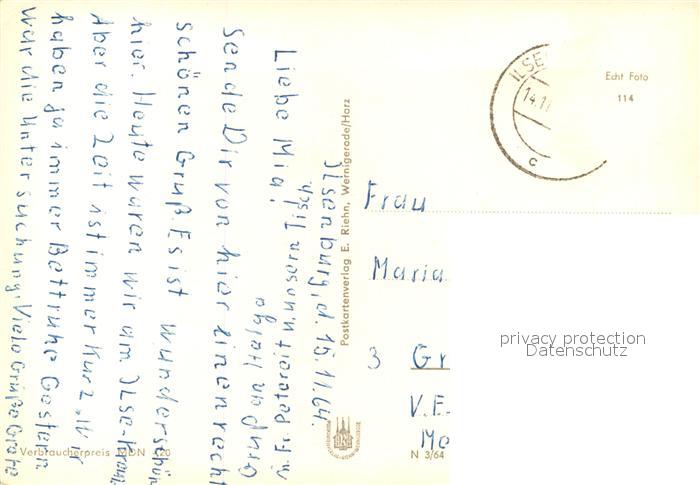 Ilsenburg, d. 15.11.64.
Liebe Mia!
Sende Dir von hier einen recht
schönen Gruß. Es ist wunderschön
hier. Heute waren wir am Ilse-
Aber die Zeit ist immer kurz, Wir
haben ja immer Bettruhe Gestern
war die Untersuchung. Viele Grüße Grete
u. Fr. Petereit u. unserer Tisch
Postkartenverlag E. Riehn, Wernigerode/Harz
ILSE
14.11
c
Echt Foto
114
Frau
Maria
3 Gr
V.E.
Me
privacy protection
Datenschutz
Verbraucherpreis MDN 20
N 3/64